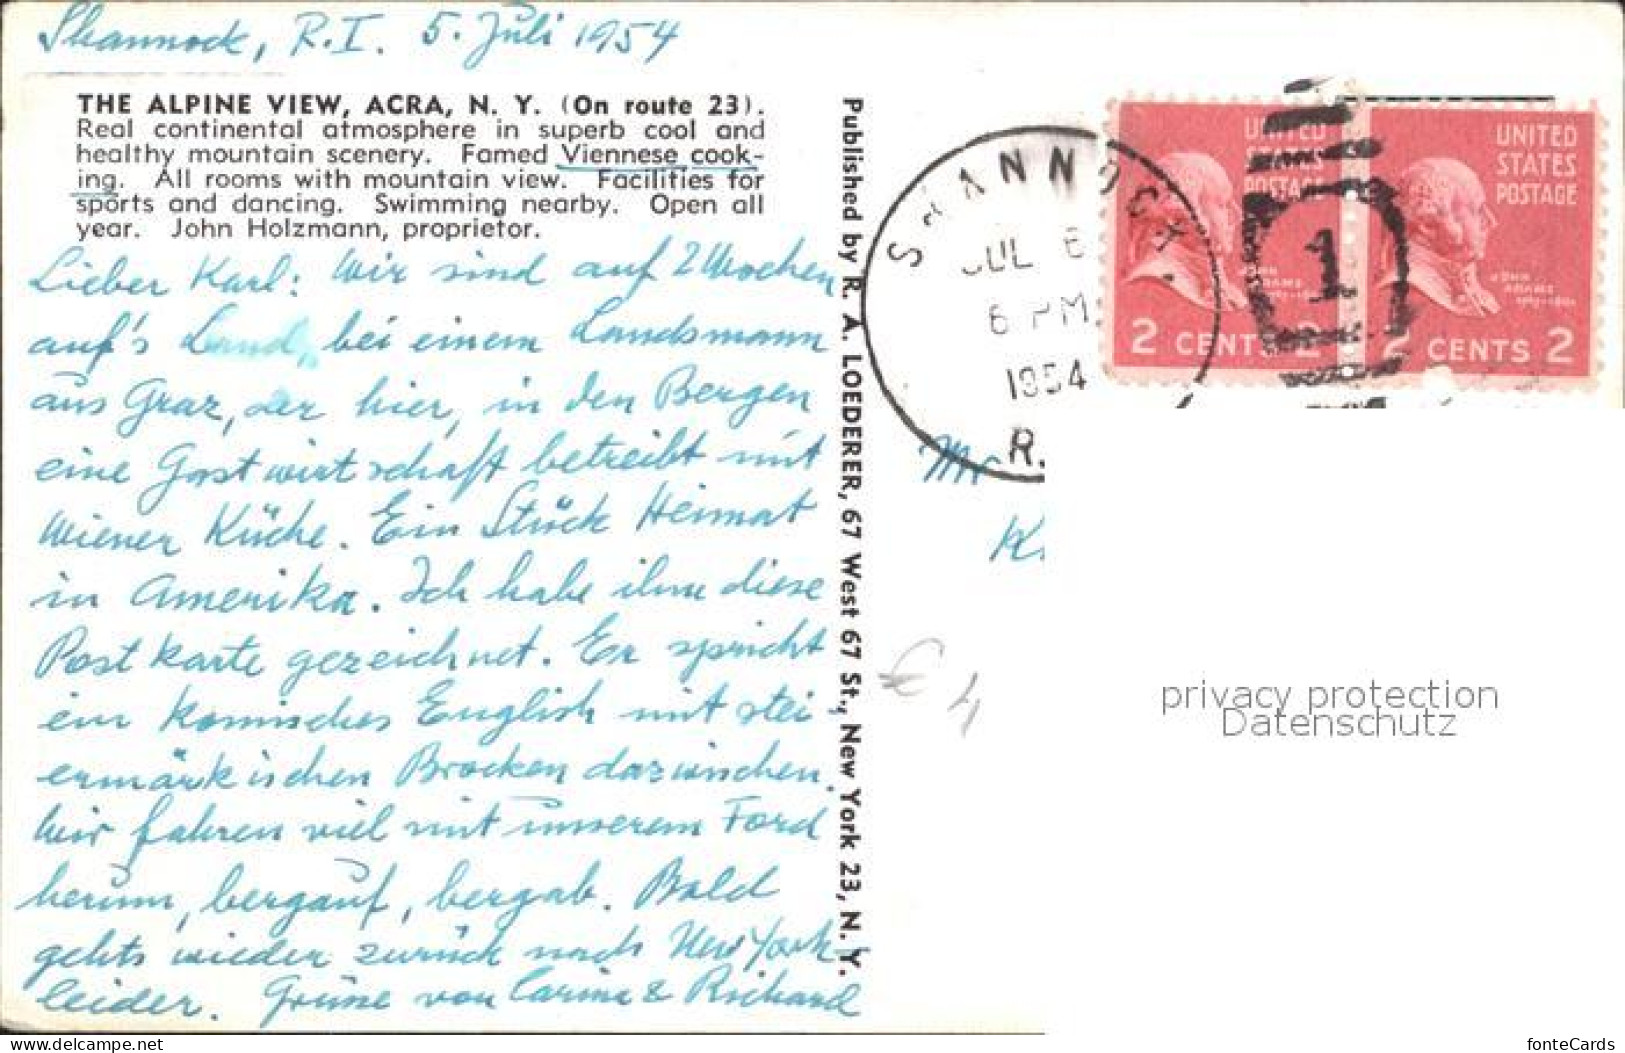 Shannock, R.I. 5. Juli 1954
THE ALPINE VIEW, ACRA, N. Y. (On route 23).
Real continental atmosphere in superb cool and
healthy mountain scenery. Famed Viennese cook-
ing. All rooms with mountain view. Facilities for
sports and dancing. Swimming nearby. Open all
year. John Holzmann, proprietor.
Lieber Karl: Wir sind auf 2 Wochen
auf's Land, bei einem Landsmann
aus Graz, der hier, in den Bergen
eine Gastwirtschaft betreibt mit
Wiener Küche. Ein Stück Heimat
in Amerika. Ich habe ihm diese
Postkarte gezeichnet. Er spricht
ein komisches English mit stei
ermärkischen Brocken dazwischen.
Wir fahren viel mit unserem Ford
herum, bergauf, bergab. Bald
gehts wieder zurück nach New York
leider. Grüsse von Carina & Richard
Published by R. A. LOEDERER, 67 West 67 St., New York 23, N. Y.
SHANNOCK
JUL 6
6 PM
1954
R.
UNITED
STATES
POSTAGE
JOHN
ADAMS
2 CENTS 2
1
UNITED
STATES
POSTAGE
JOHN
ADAMS
2 CENTS 2
Mr
K
€ 4
privacy protection
Datenschutz
www.delcampe.net
fonteCards